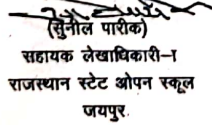 (सुनील पारीक)
सहायक लेखाधिकारी-I
राजस्थान स्टेट ओपन स्कूल
जयपुर